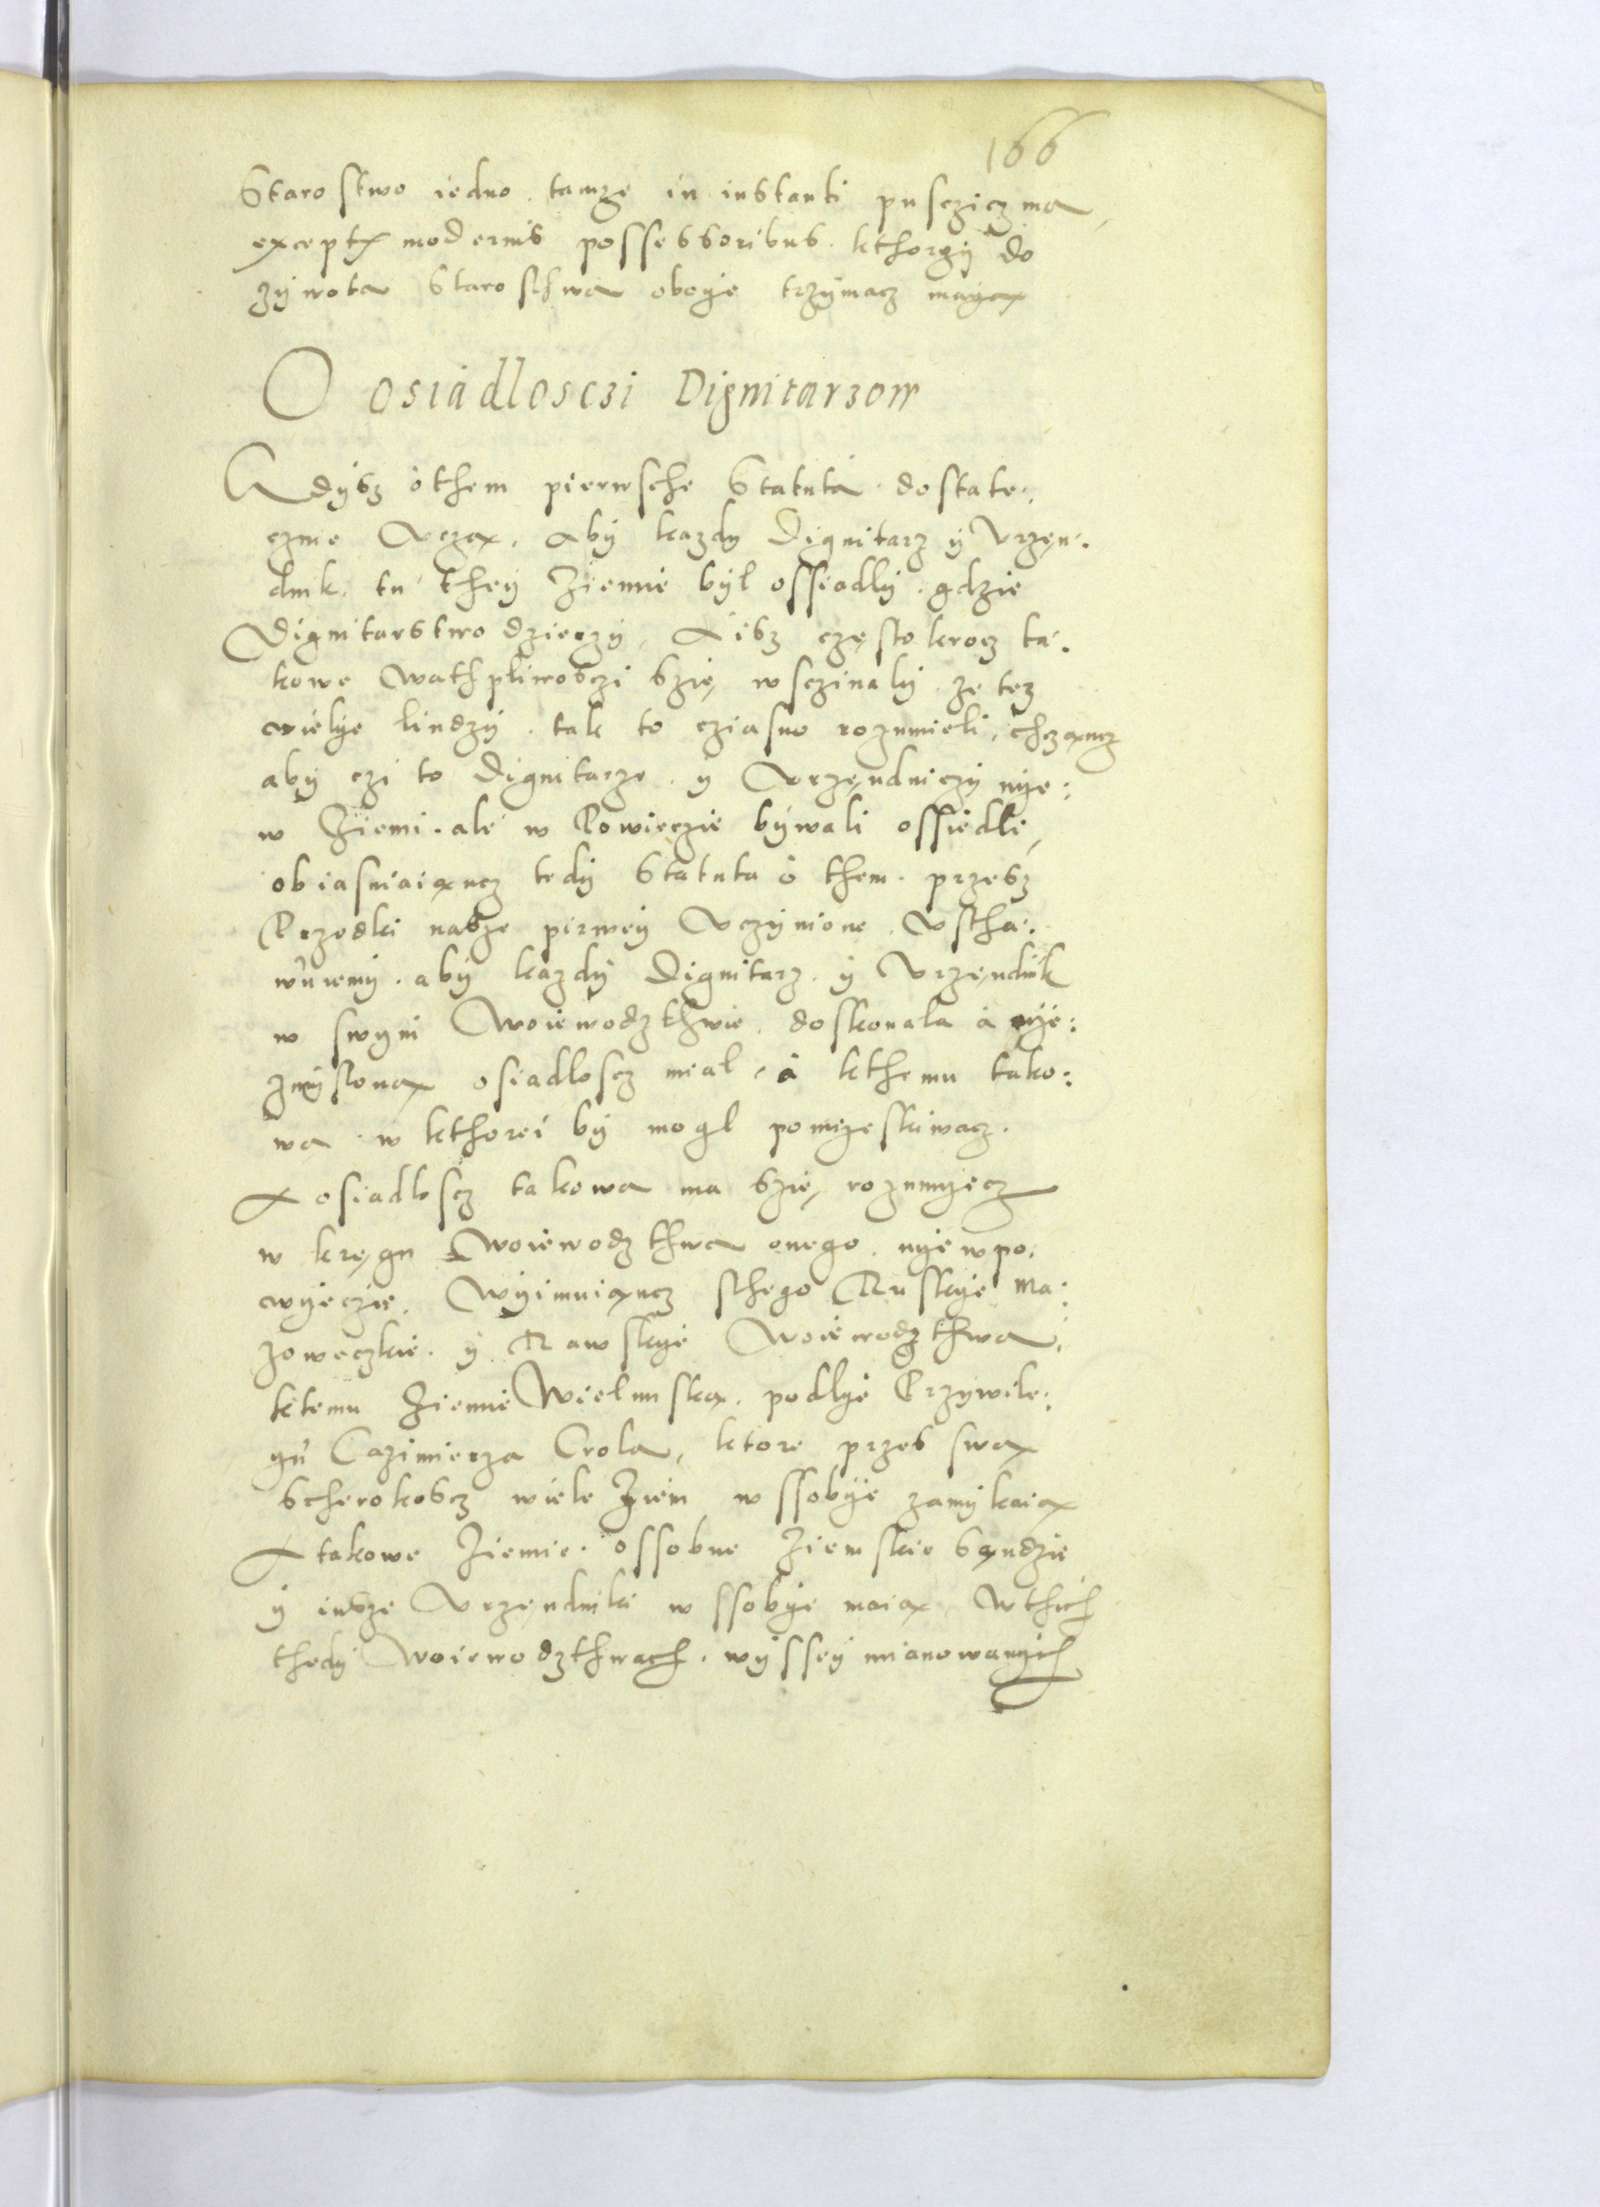 166
Starostwo iedno tamze in instanti pusczicz ma
exceptis modernis possessoribus kthorzy do
zywota Starosthwa oboye trzymacz mayą
O osiadlosczi Dignitarzow
Gdysz o them pierwsche Statuta dostate:
cznie Uczą, aby kazdy Dignitarz y Urzęn:
dnik tu they Ziemie był ossiadly gdzie
Dignitarstwo dzierzy, Aisz częstokrocz ta:
kowe Wathpliwosczi szię wsczinaly ze tez
wielye liudzy tak to cziasno rozumieli, chczącz
aby czi to Dignitarze y Urzędniczy nye:
w Ziemi ale w Powieczie bywali ossiedli,
obiasniaiącz tedy Statuta o them przesz
Przodki nasze pirwey Uczynione Ustha:
wuiemy aby kazdy Dignitarz y Urzęndnik
w swym Woiewodzthwie doskonala a nye:
zmysloną osiadloscz mial, a kthemu tako:
wa w kthorei by mogl pomieskiwacz.
A osiadloscz takowa ma szię rozumyecz
w kręgu Woiewodzthwa onego nye w po:
wyeczie, Wyimuiącz sthego Ruskye Ma:
zoweczkie y Rawskye Woiewodzthwa,
ktemu Ziemie Wielunską podlye Przywile:
yu Cazimierza Crola, ktore przes swą
scherokoscz wiele Ziem w ssobye zamykaią
A takowe Ziemie ossobne Ziemskie Sąndzie
y insze Urzędniki w ssobye maią Wthich
thedy Woiewodzthwach wyssey mianowanych